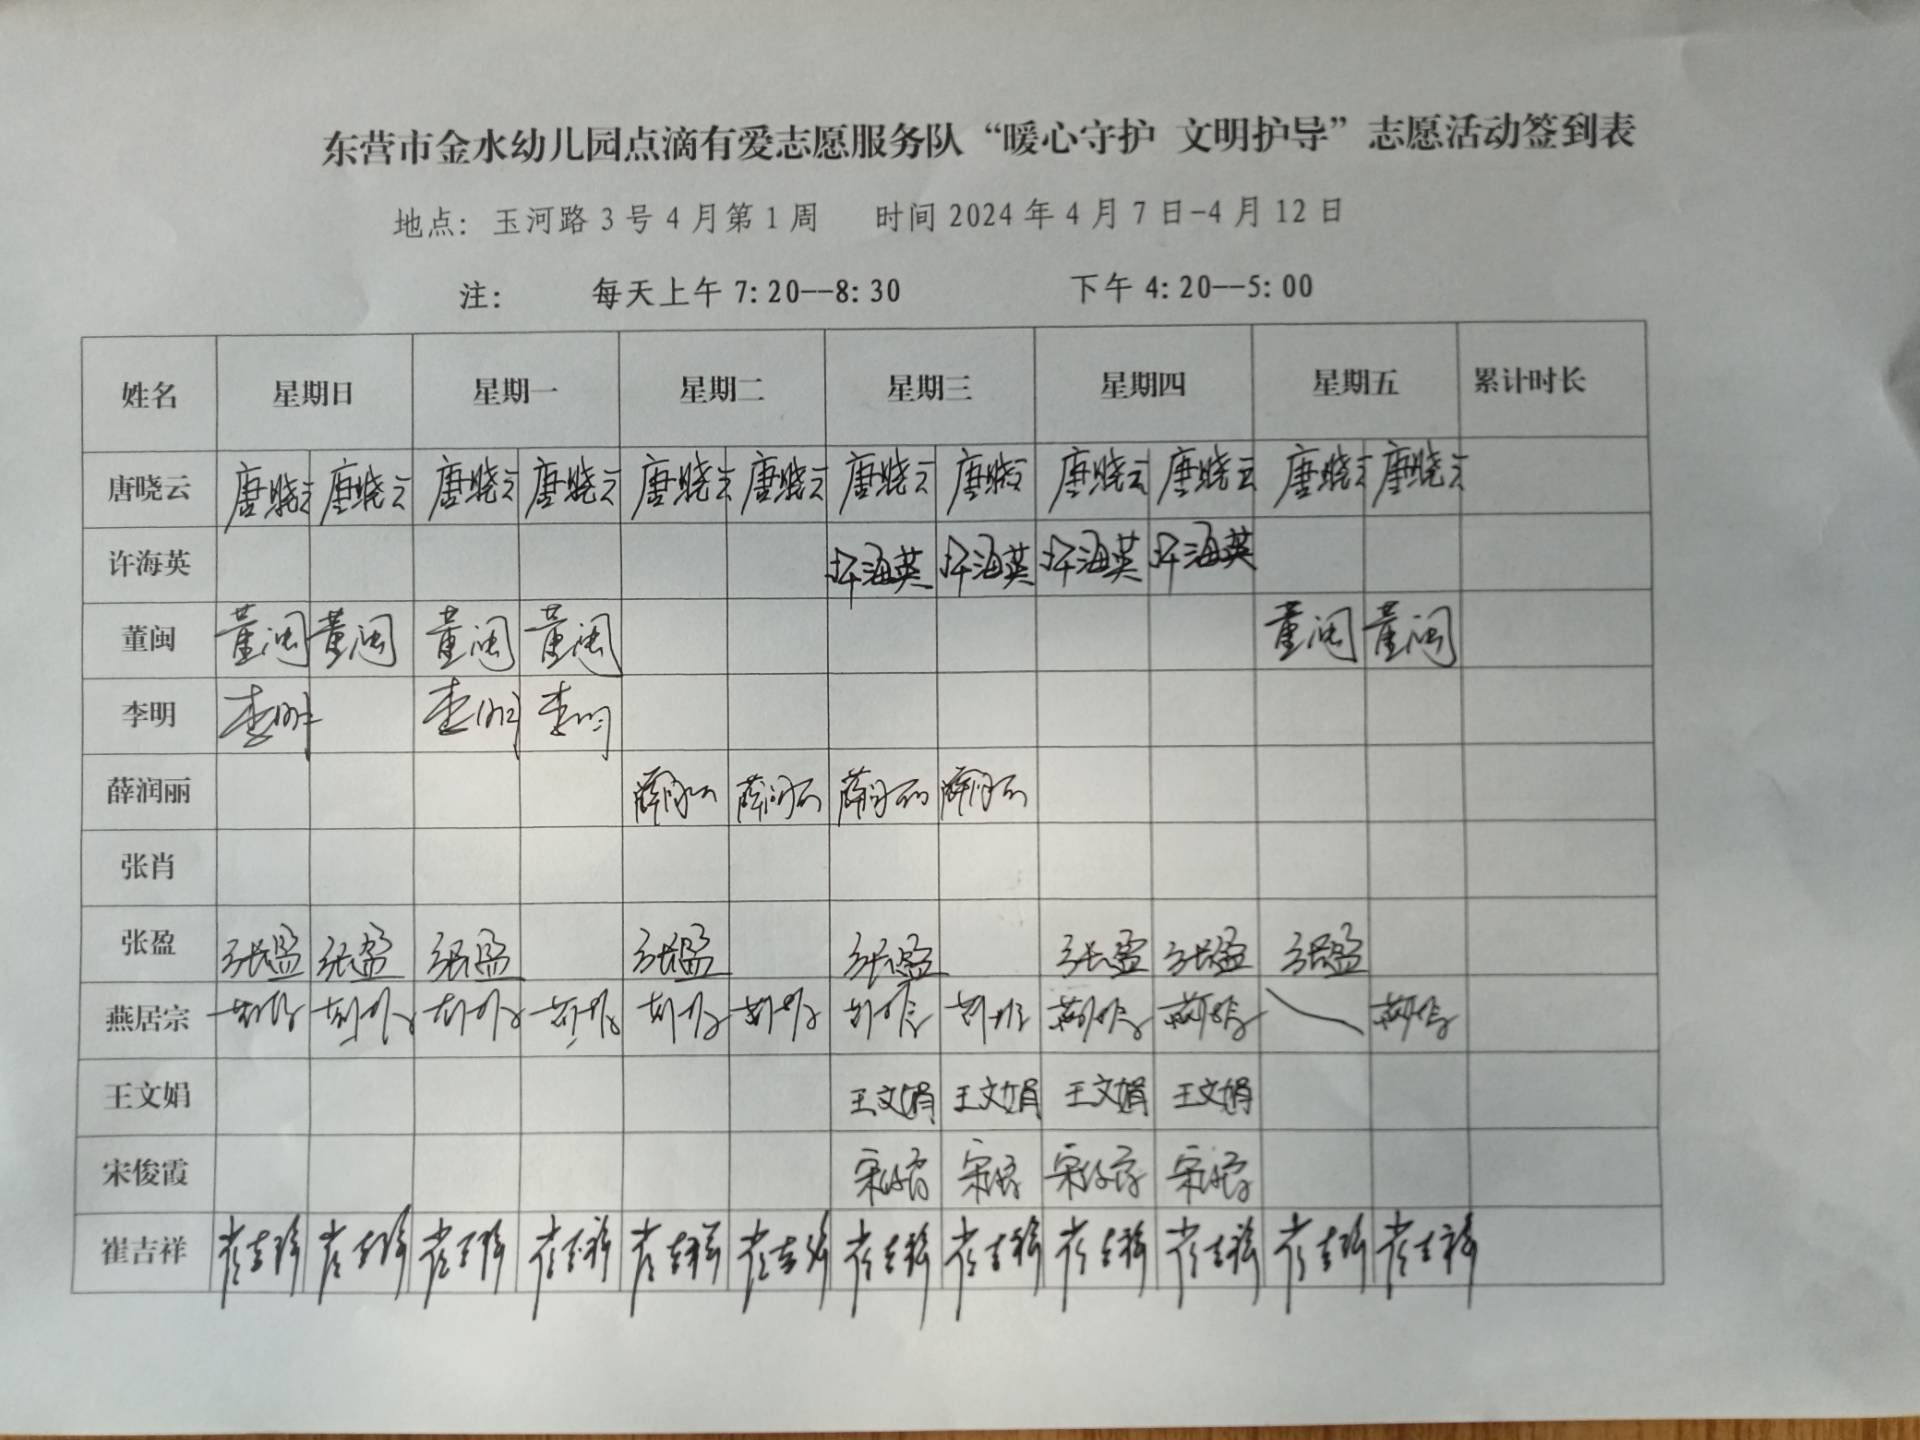 东营市金水幼儿园点滴有爱志愿服务队“暖心守护 文明护导”志愿活动签到表
地点：玉河路3号4月第1周 时间2024年4月7日-4月12日
注： 每天上午7:20--8:30 下午4:20--5:00
姓名 星期日 星期一 星期二 星期三 星期四 星期五 累计时长
唐晓云 唐晓云 唐晓云 唐晓云 唐晓云 唐晓云 唐晓云 唐晓云 唐晓云 唐晓云 唐晓云 唐晓云 唐晓云
许海英 许海英 许海英 许海英 许海英
董闽 董闽 董闽 董闽 董闽 董闽 董闽
李明 李明 李明 李明
薛润丽 薛润丽 薛润丽 薛润丽 薛润丽
张肖
张盈 张盈 张盈 张盈 张盈 张盈 张盈 张盈 张盈
燕居宗
王文娟 王文娟 王文娟 王文娟 王文娟
宋俊霞 宋俊霞 宋俊霞 宋俊霞 宋俊霞
崔吉祥 崔吉祥 崔吉祥 崔吉祥 崔吉祥 崔吉祥 崔吉祥 崔吉祥 崔吉祥 崔吉祥 崔吉祥 崔吉祥 崔吉祥